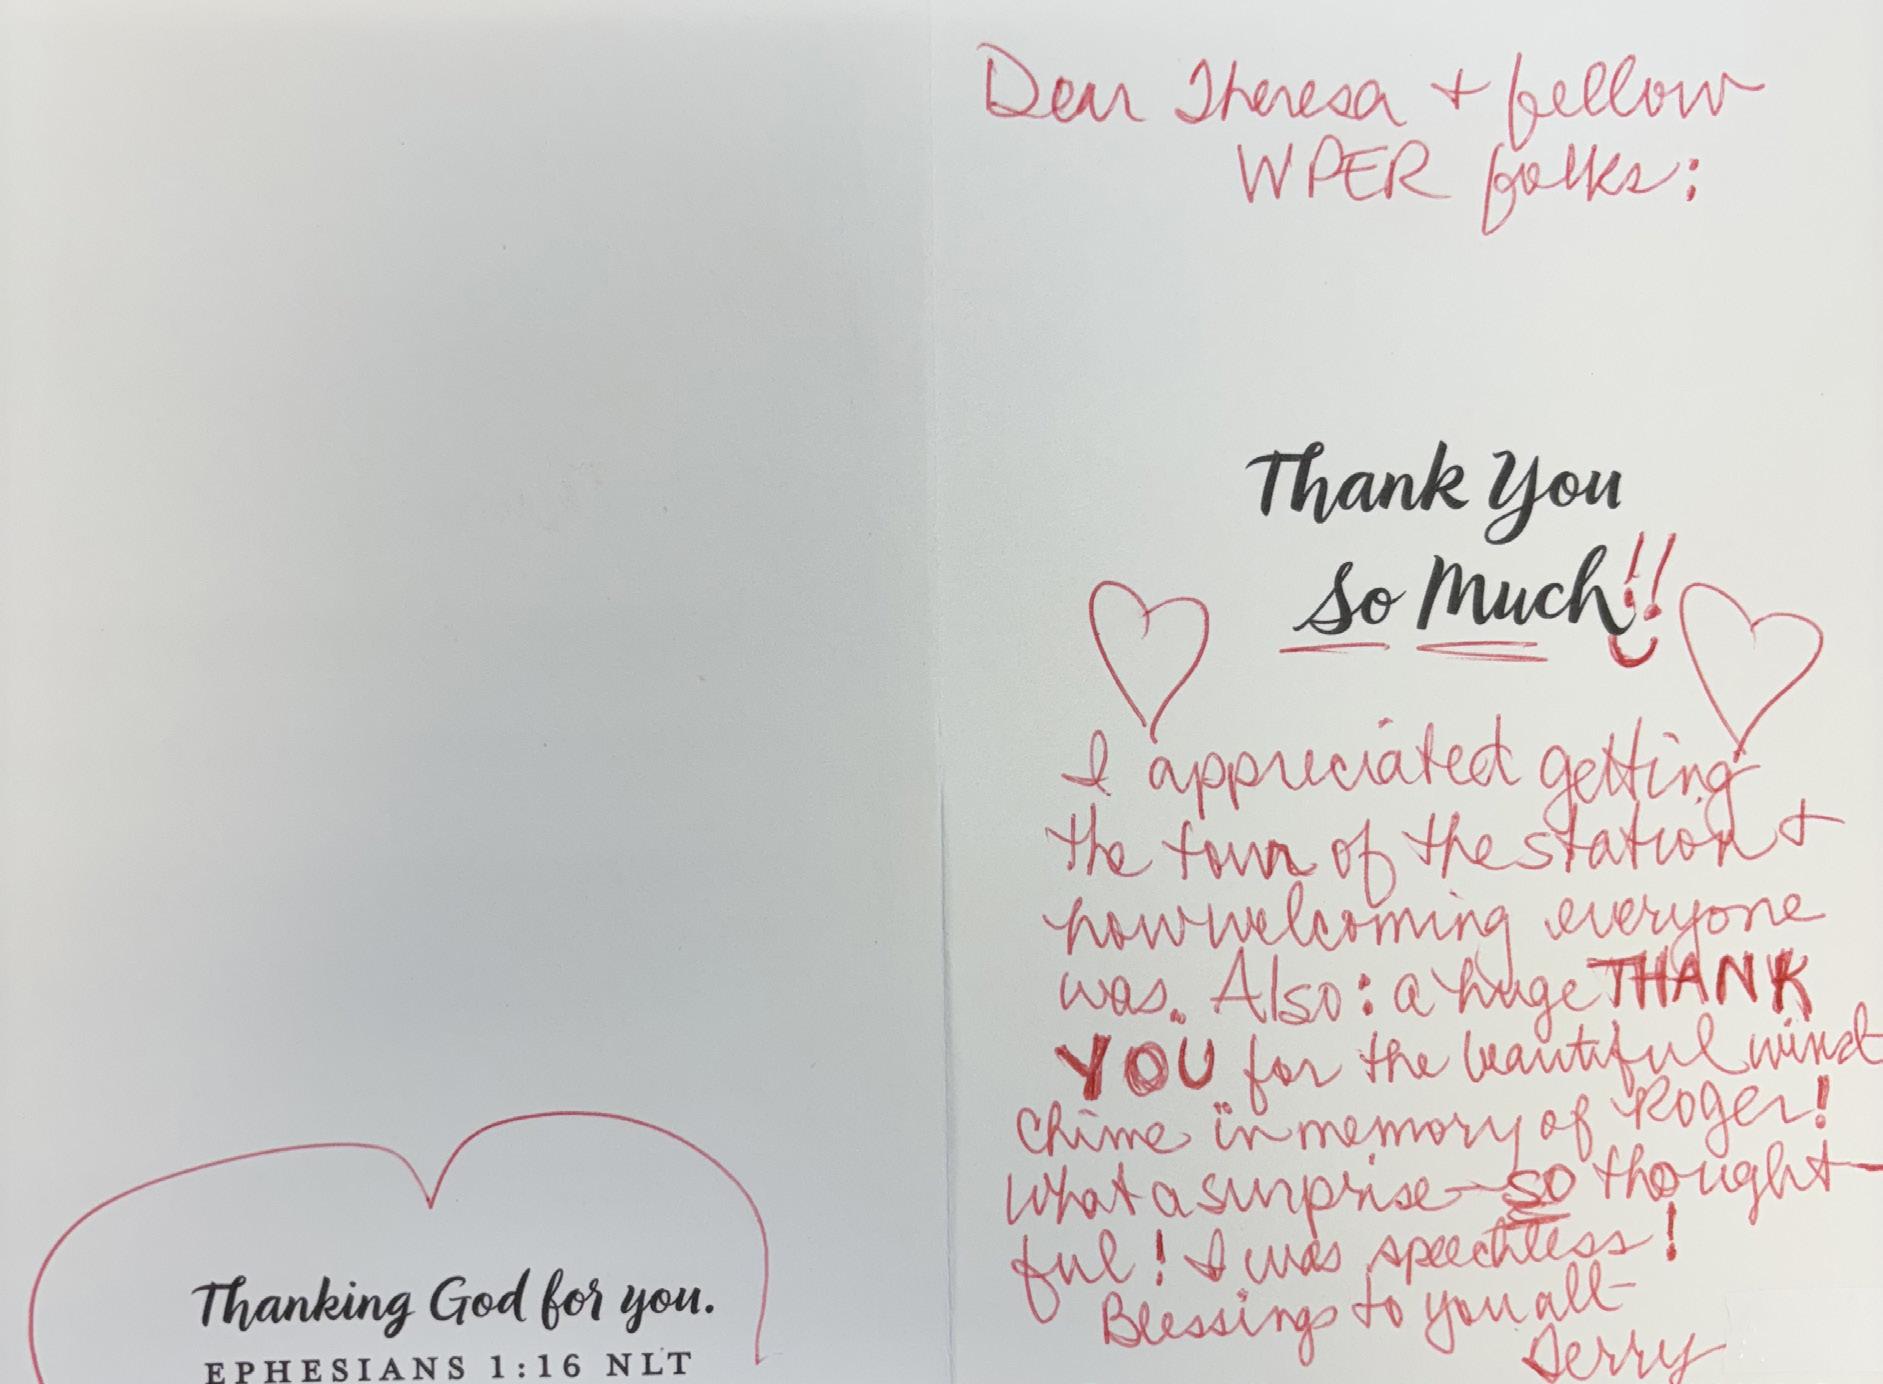 Thanking God for you.
EPHESIANS 1:16 NLT
Dear Theresa + fellow
WPER folks:
Thank You
So Much!!
I appreciated getting
the tour of the station +
how welcoming everyone
was. Also: a huge THANK
YOU for the beautiful wind
chime in memory of Roger!
What a surprise - SO thought-
ful! I was speechless!
Blessings to you all -
Terry